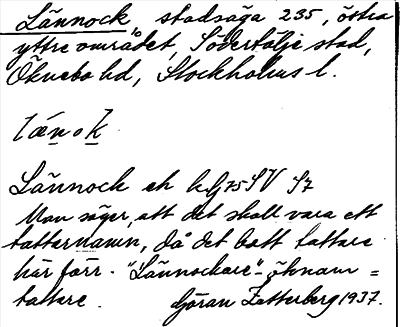 Lännock stadsäga 235, östra
yttre området, Södertälje stad,
Öknebo hd, Stockholms l.
lænok
Lännock eh kG75SV S7
Man säger, att det skall vara ett
tattarnamn, då det bott tattare
här förr. "Lännockare" - öknamn =
tattare. Göran Zetterberg 1937.